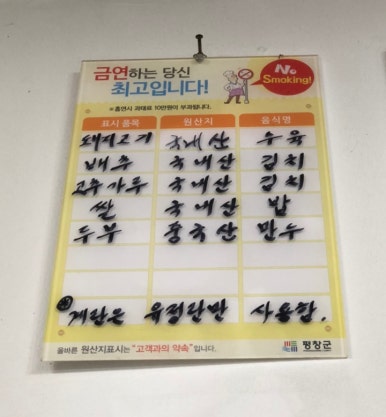 금연하는 당신
최고입니다!
No Smoking!
※흡연시 과태료 10만원이 부과됩니다.
표시 품목 원산지 음식명
돼지고기 국내산 수육
배추 국내산 김치
고추가루 국내산 김치
쌀 국내산 밥
두부 중국산 만두
계란은 유정란만 사용함.
올바른 원산지표시는 "고객과의 약속"입니다.
평창군